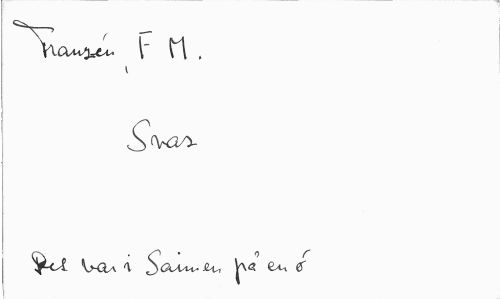 Franzén, F M.
Svar
Det var i Saimen på en ö